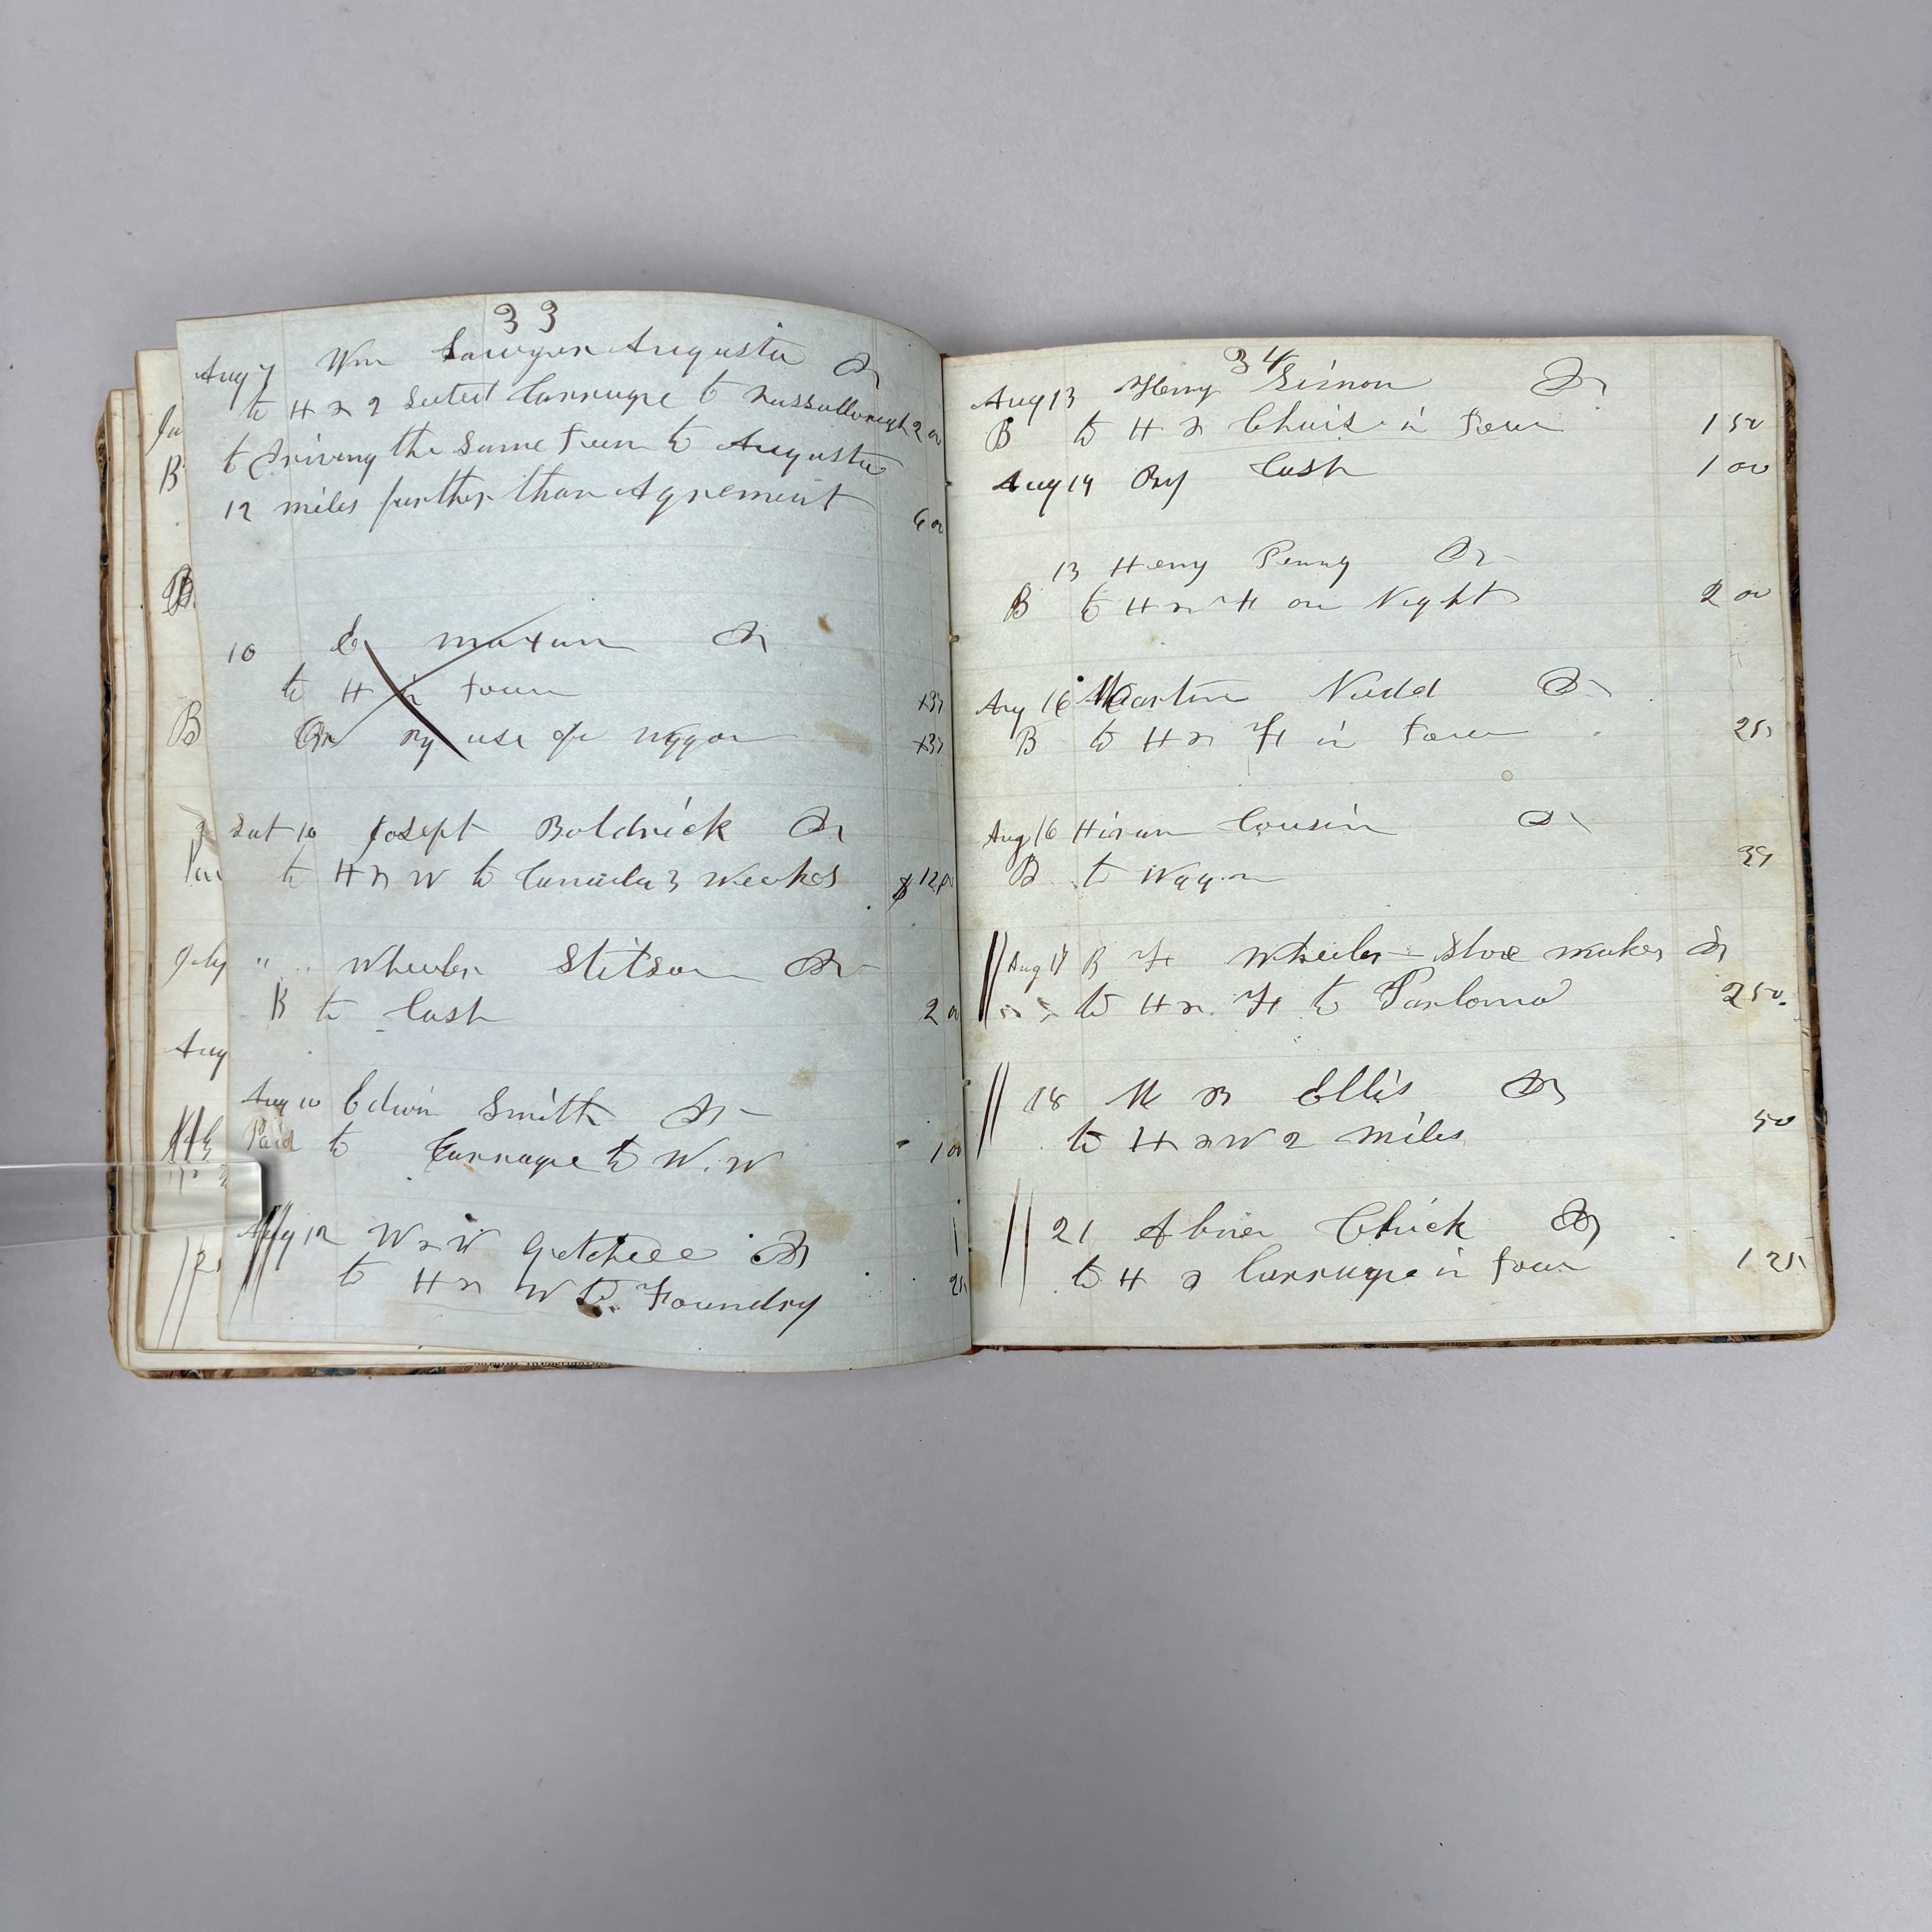 33
Aug 7 Wm Sawyer Augusta Dr
to H & 2 Seted Carrage to Vassalborough 2 00
to Driving the Same team to Augusta
12 miles further than Agrement 6 00
10 C maxum Dr
to H in town 37
Cr By use of waggon 37
Sat 10 Josept Boldrick Dr
to H & W to Canada 3 Weekes $ 12.00
" " Wheeler Stitson Dr
B to Cash 2 00
Aug 10 Edwin Smith Dr
Paid to Carrage to W. W 1 00
Aug 12 W & W Getchell Dr
to H & W to Foundry 25
34
Aug 13 Henry Simon Dr
B to H & Chais in town 1 50
Aug 14 By Cash 1 00
13 Henry Penny Dr
B to H & H on Night 2 00
Aug 16 Martin Nudd Dr
B to H & H in town 25
Aug 16 Hiram Cousin Dr
B to Waggon
Aug 17 B H Wheeler Shoe maker Dr
to H & H to 2 50
18 M B Ellis Dr
to H & W 2 miles 50
21 Abner Chick Dr
to H & Carrage in town 1 25
July
Aug